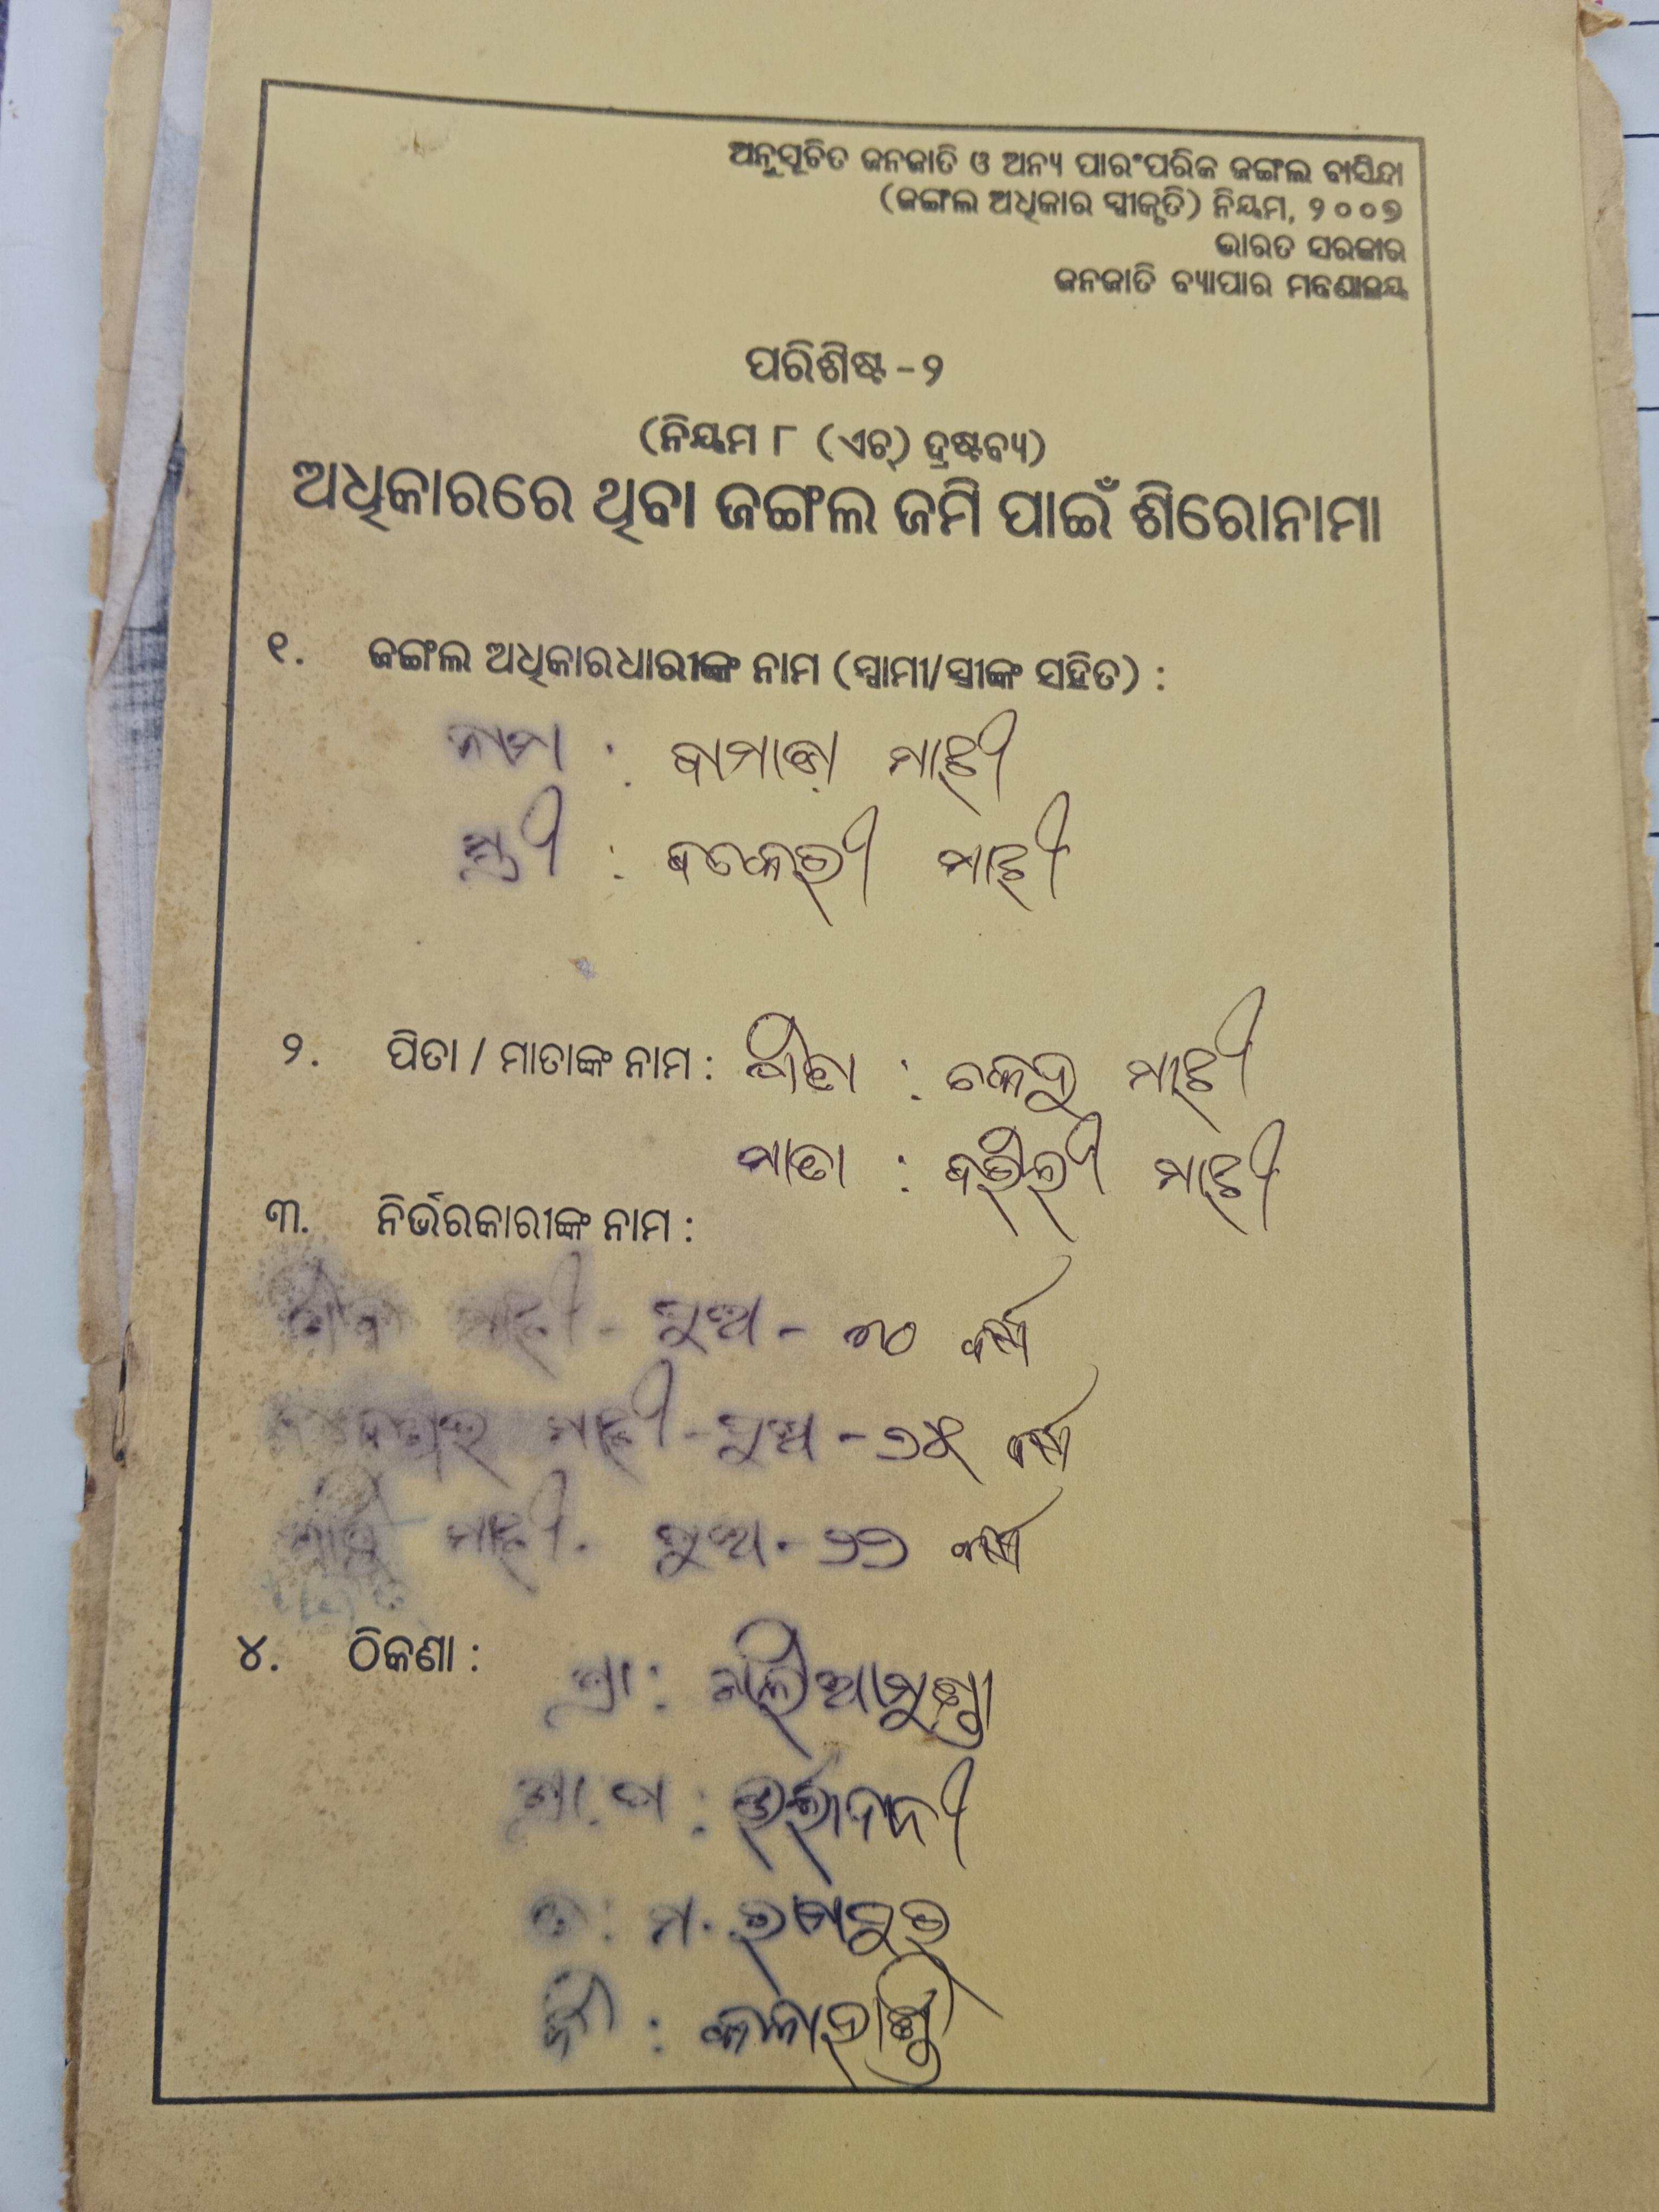 ଅନୁସୂଚିତ ଜନଜାତି ଓ ଅନ୍ୟ ପାରଂପରିକ ଜଙ୍ଗଲ ବାସିନ୍ଦା
(ଜଙ୍ଗଲ ଅଧିକାର ସ୍ୱୀକୃତି) ନିୟମ, ୨୦୦୭
ଭାରତ ସରକାର
ଜନଜାତି ବ୍ୟାପାର ମନ୍ତ୍ରଣାଳୟ
ପରିଶିଷ୍ଟ - ୨
(ନିୟମ ୮ (ଏଚ୍) ଦ୍ରଷ୍ଟବ୍ୟ)
ଅଧିକାରରେ ଥିବା ଜଙ୍ଗଲ ଜମି ପାଇଁ ଶିରୋନାମା
୧. ଜଙ୍ଗଲ ଅଧିକାରଧାରୀଙ୍କ ନାମ (ସ୍ୱାମୀ/ସ୍ତ୍ରୀଙ୍କ ସହିତ) :
ନାମ : ମାଝୀ
ସ୍ତ୍ରୀ : ମାଝୀ
୨. ପିତା / ମାତାଙ୍କ ନାମ : ପିତା : ମାଝୀ
ମାତା : ମାଝୀ
୩. ନିର୍ଭରକାରୀଙ୍କ ନାମ :
ମାଝୀ - ପୁଅ - ୩୦ ବର୍ଷ
ମାଝୀ - ପୁଅ - ୨୫ ବର୍ଷ
ମାଝୀ - ପୁଅ - ୨୨ ବର୍ଷ
୪. ଠିକଣା :
ଗ୍ରା : ମୁଣ୍ଡା
ଗ୍ରା.ପ : ଉର୍ଲାଦାନୀ
ମ. ରାମପୁର
ଜି : କଳାହାଣ୍ଡି